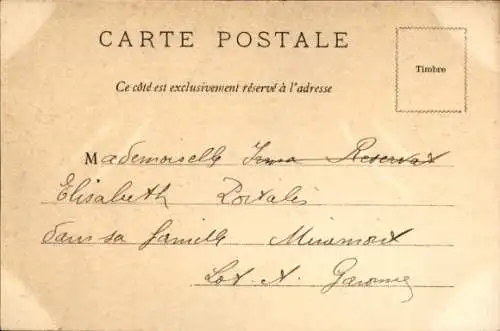 CARTE POSTALE
Timbre
Ce côté est exclusivement réservé à l'adresse
Mademoiselle Irma
Elisabeth
dans sa famille Miramont
Lot. &. Garonne